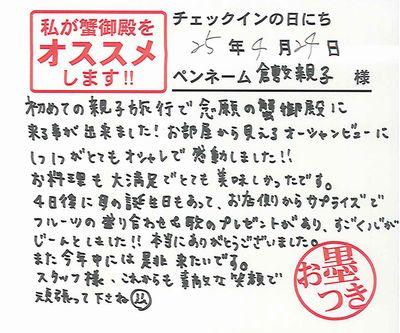 私が蟹御殿を
オススメ
します!!
チェックインの日にち
25年4月24日
ペンネーム 倉敷親子 様
初めての親子旅行で念願の蟹御殿に
来る事が出来ました!お部屋から見えるオーシャンビューに
とてもオシャレで感動しました!!
お料理も大満足でとても美味しかったです。
4日後に母の誕生日もあって、お店側からサプライズで
フルーツの盛り合わせ&歌のプレゼントがあり、すごく心が
じーんとしました!!本当にありがとうございました。
また今年中には是非来たいです。
スタッフ様、これからも素敵な笑顔で
頑張って下さね
お墨つき